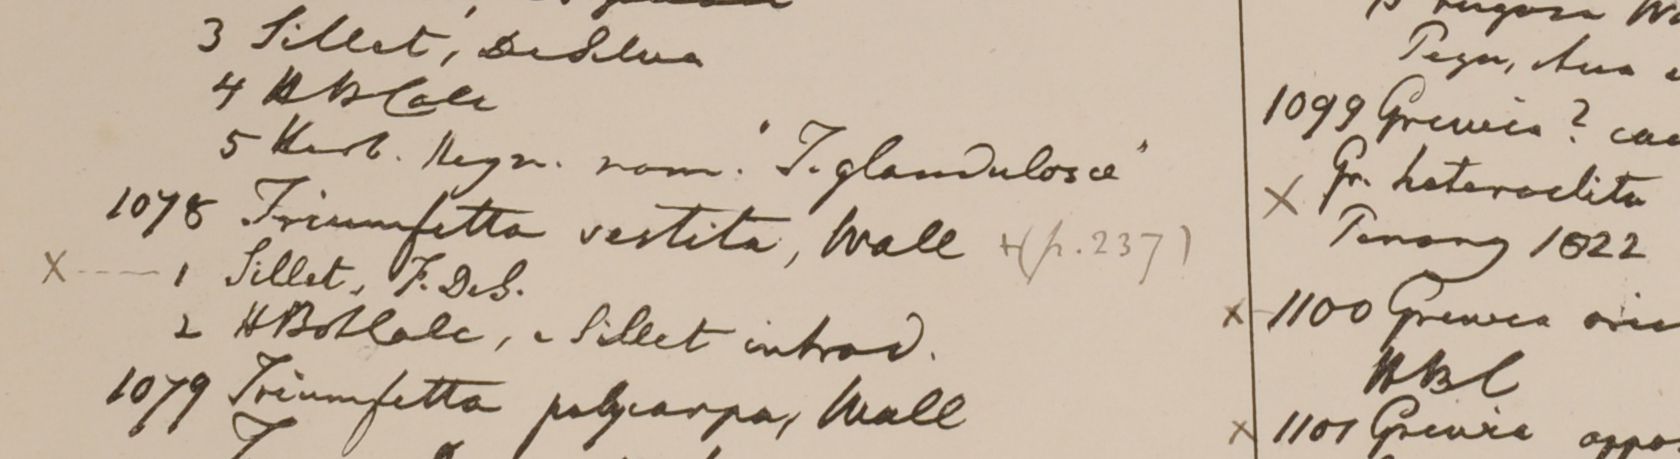 3 Sillet, DeSilva
4 HB Calc
5 Herb. Heyn. nom. 'T. glandulosa'
1078 Triumfetta vestita, Wall +(p. 237)
x 1 Sillet, F. DeS.
2 HBot Calc, e Sillet introd.
1079 Triumfetta polycarpa, Wall
rugosa
Pegu, Ava
1099 Grewia ?
x Gr. heteroclita
Penang 1822
x 1100 Grewia
HBC
x 1101 Grewia oppo